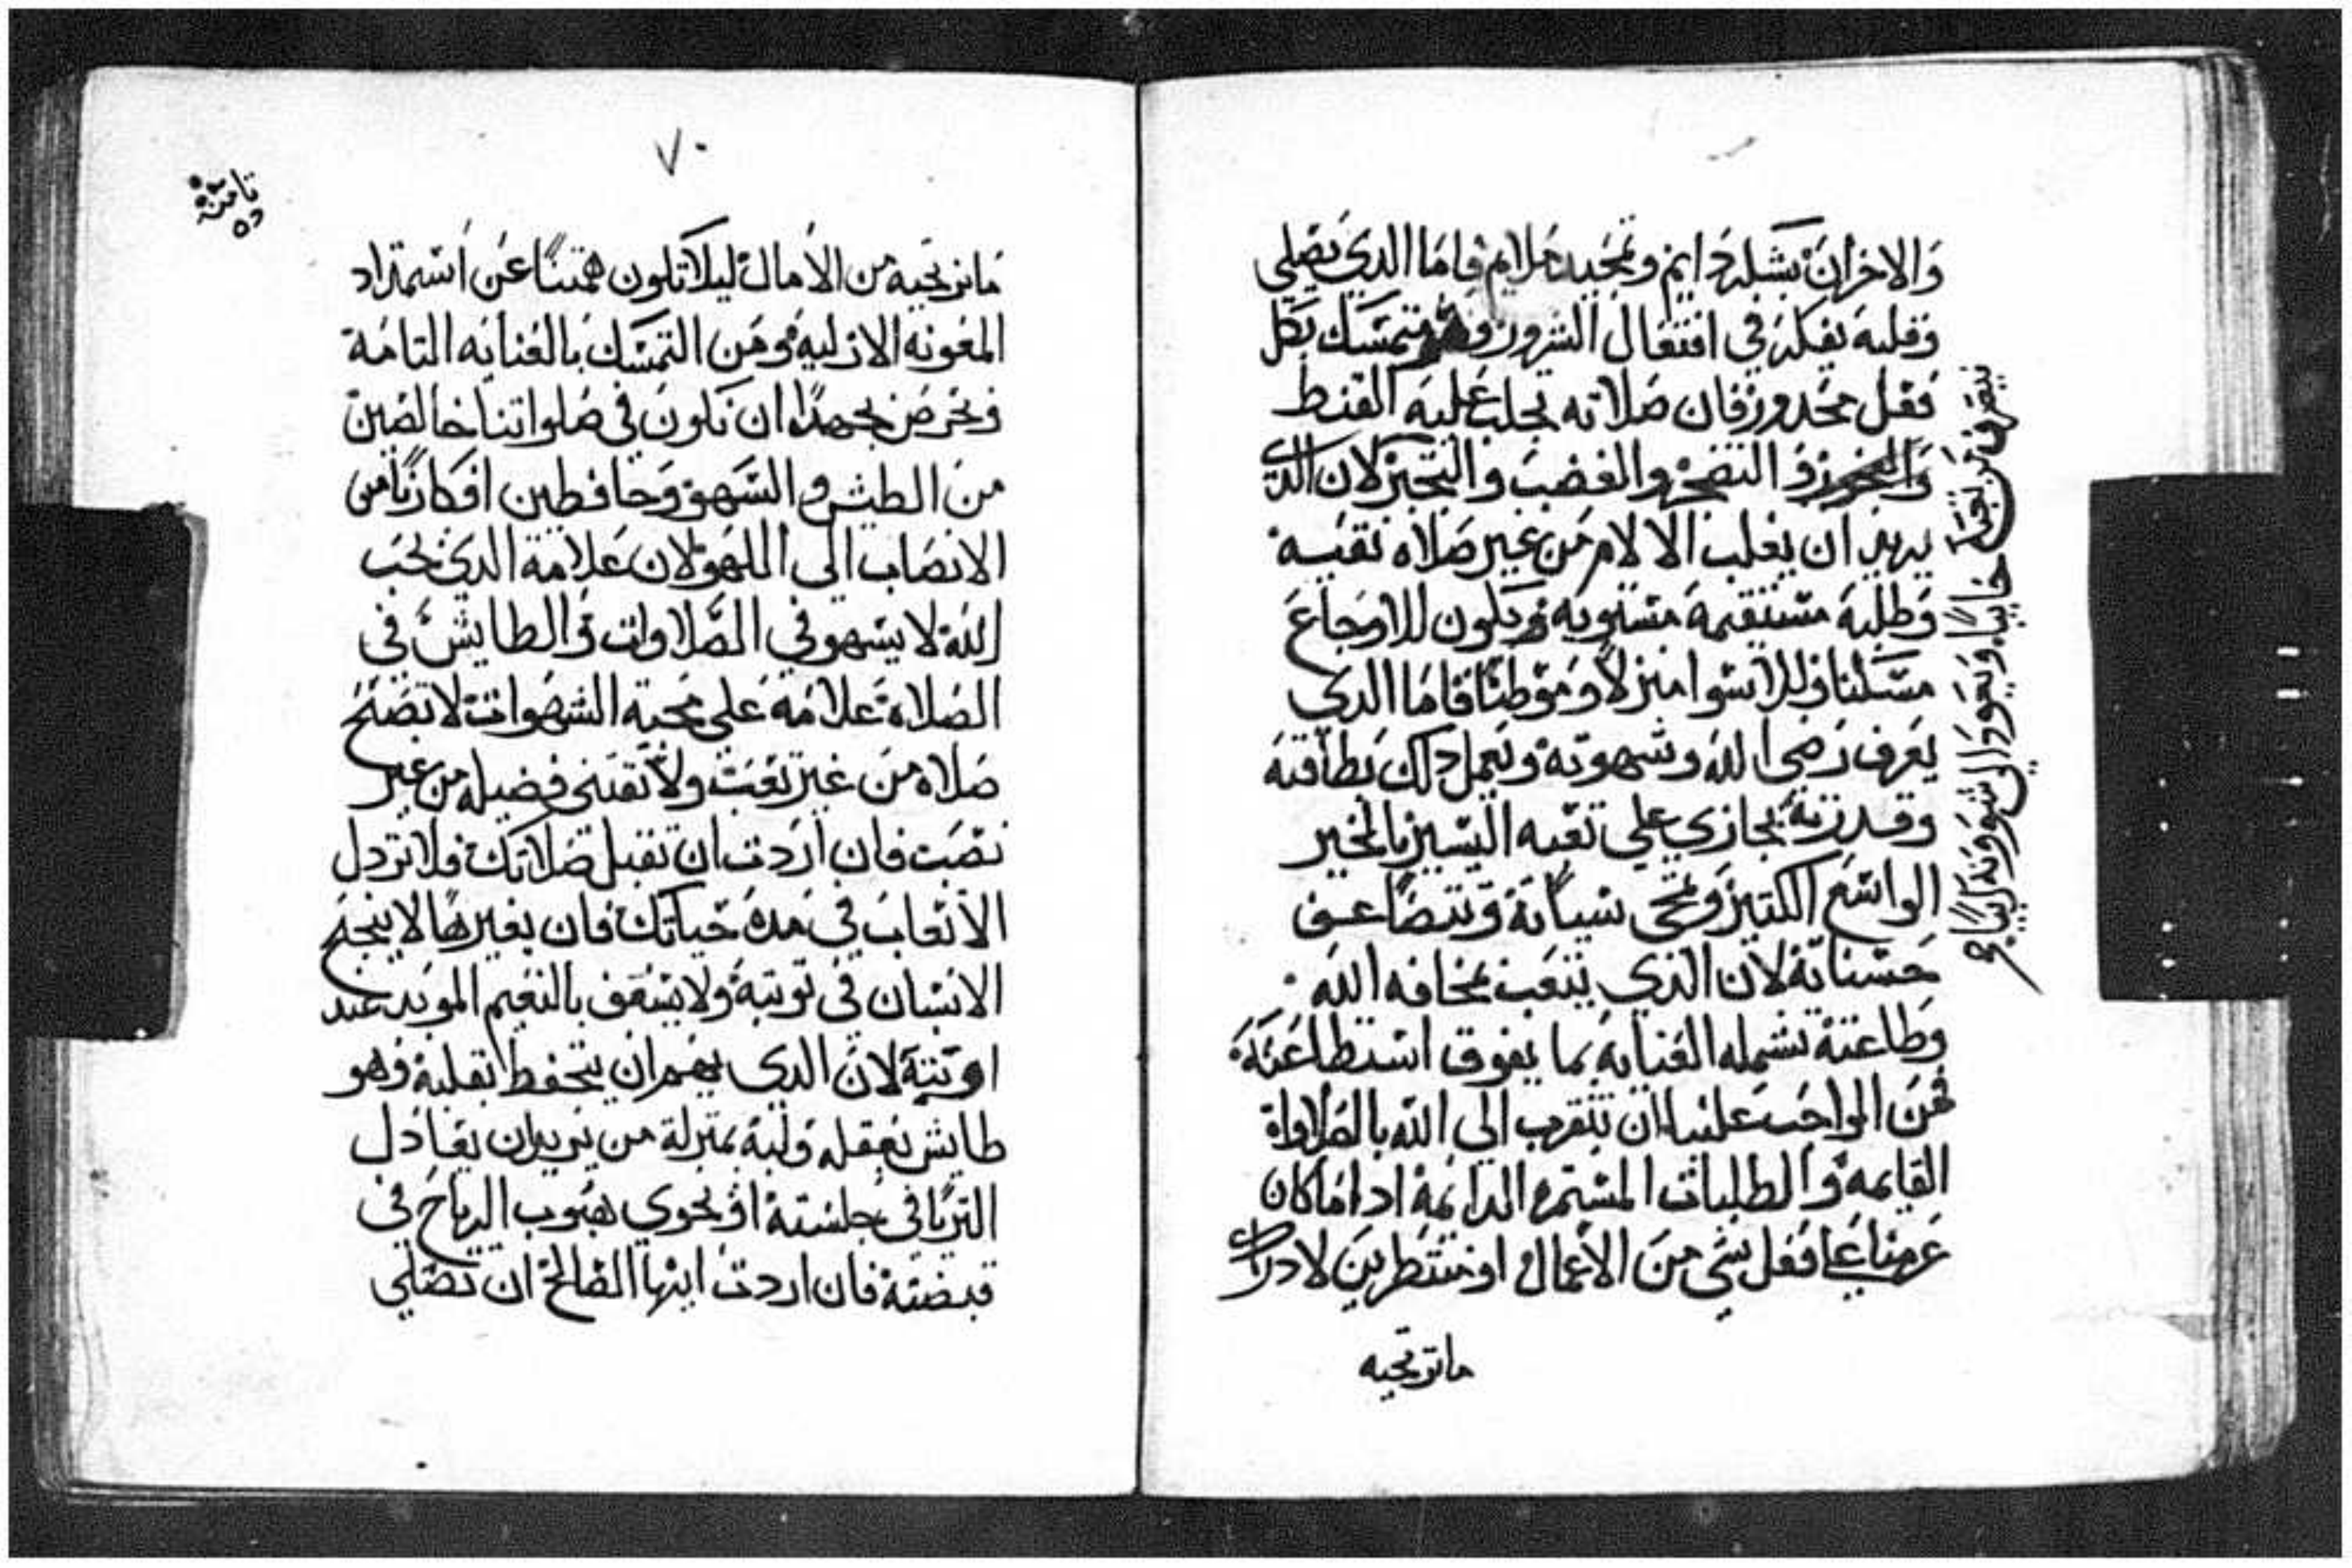 والاحزان بشكر دايم وتمجيد ملايم فاما الدي يصلي
وقلبه يفكر في افتعال الشرور وهو متمسك بكل
فعل محدور فان صلاته تجلب عليه القنط
والتضجر والغضب والتجبر لان الدي
يريد ان يغلب الالام من غير صلاه نقيه
وطلبه مستقيمه مستويه فيكون للاوجاع
مسكنا وللاسوا منزلاً وموطنًا فاما الدي
يعرف رضي الله وشهوته ويعمل دلك بطاقته
وقدرته يجازي علي تعبه اليسير بالخير
الواسع الكتير وتمحي سياته وتتضاعف
حسناته لان الدي يتعب بمخافه الله
وطاعته تشمله العنايه بما يفوق استطاعته
فمن الواجب علينا ان نتقرب الي الله بالصلاواة
القايمه والطلبات المستمره الدايمه ادا ما كان
عزمنا علي فعل شي من الاعمال او منتظرين لادراك
ما نرتجيه
٧٠
تامنه
ما نرتجيه من الأمال ليلا تكون همتنا عن استمداد
المعونه الازليه ومن التمسك بالعنايه التامة
ونحرص بجهدنا ان نكون في صلواتنا خالصين
من الطيش والسهو وحافظين افكارنا من
الانصاب الي اللهو لان علامة الدي يحب
الله لا يسهو في الصلاوات والطايش في
الصلاة علامة علي محبة الشهوات لا تصح
صلاه من غير تعب ولا تقتني فضيله من غير
نصب فان اردت ان تقبل صلاتك فلا تردل
الأتعاب في مدة حياتك فان بغيرها لا ينجح
الانسان في توبته ولا يسعف بالنعيم الموبد عند
اوبته لان الدي يهم ان يتحفظ بقلبه وهو
طايش بعقله ولبه بمنزلة من يريد ان يعادل
التريا في جلسته او يحوي هبوب الرياح في
قبضته فان اردت ايها الصالح ان تصلي